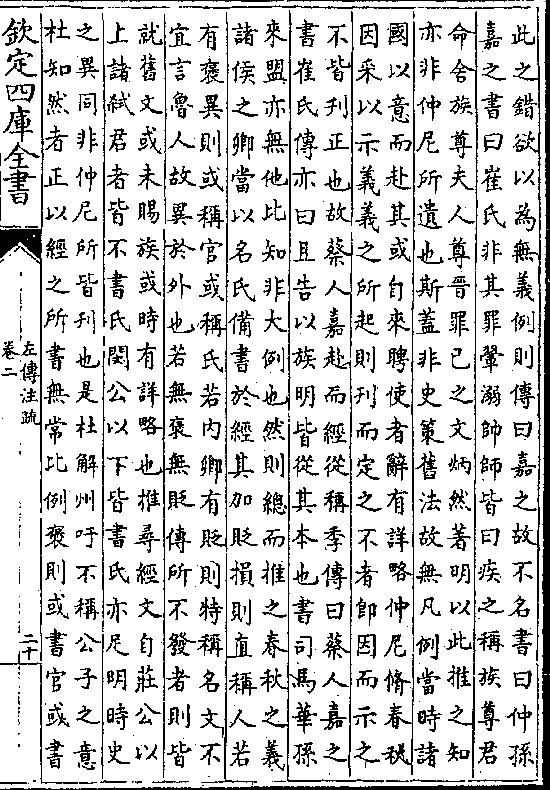 此之錯欲以為無義例則傳曰嘉之故不名書曰仲孫
嘉之書曰崔氏非其罪翬溺帥師皆曰疾之稱族尊君
命舍族尊夫人尊晉罪己之文炳然著明以此推之知
亦非仲尼所遺也斯蓋非史策舊法故無凡例當時諸
國以意而赴其或自來聘使者辭有詳略仲尼脩春秋
因采以示義義之所起則刊而定之不者即因而示之
不皆刊正也故蔡人嘉赴而經從稱季傳曰蔡人嘉之
書崔氏傳亦曰且告以族明皆從其本也書司馬華孫
來盟亦無他比知非大例也然則總而推之春秋之義
諸侯之卿當以名氏備書於經其加貶損則直稱人若
有褒異則或稱官或稱氏若內卿有貶則特稱名文不
宜言魯人故異於外也若無褒無貶傳所不發者則皆
就舊文或未賜族或時有詳略也推尋經文自莊公以
上諸弒君者皆不書氏閔公以下皆書氏亦足明時史
之異同非仲尼所皆刊也是杜解州吁不稱公子之意
杜知然者正以經之所書無常比例褒則或書官或書
欽定四庫全書
左傳注疏
卷二
二十